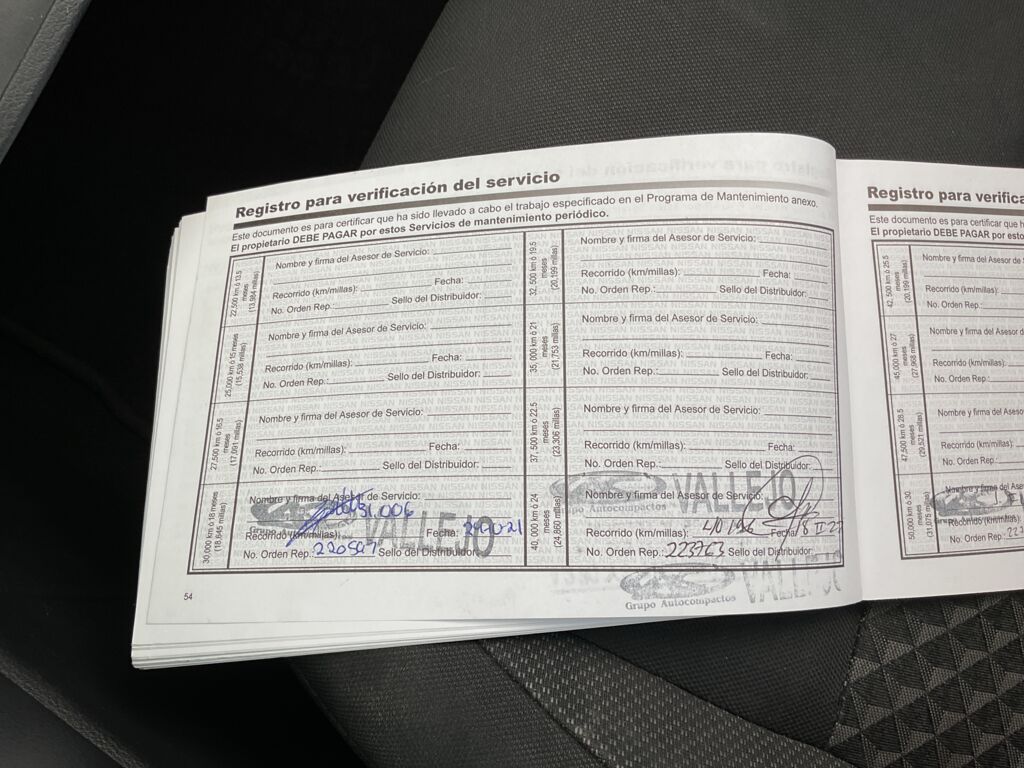 Registro para verificación del servicio
Este documento es para certificar que ha sido llevado a cabo el trabajo especificado en el Programa de Mantenimiento anexo.
El propietario DEBE PAGAR por estos Servicios de mantenimiento periódico.
22,500 km ó 13.5 meses (13,984 millas)
Nombre y firma del Asesor de Servicio:
Recorrido (km/millas): Fecha:
No. Orden Rep.: Sello del Distribuidor:
25,000 km ó 15 meses (15,538 millas)
Nombre y firma del Asesor de Servicio:
Recorrido (km/millas): Fecha:
No. Orden Rep.: Sello del Distribuidor:
27,500 km ó 16.5 meses (17,091 millas)
Nombre y firma del Asesor de Servicio:
Recorrido (km/millas): Fecha:
No. Orden Rep.: Sello del Distribuidor:
30,000 km ó 18 meses (18,645 millas)
Nombre y firma del Asesor de Servicio:
31.006
Grupo VALLEJO
Recorrido (km/millas): Fecha:
No. Orden Rep.: Sello del Distribuidor:
32,500 km ó 19.5 meses (20,199 millas)
Nombre y firma del Asesor de Servicio:
Recorrido (km/millas): Fecha:
No. Orden Rep.: Sello del Distribuidor:
35,000 km ó 21 meses (21,753 millas)
Nombre y firma del Asesor de Servicio:
Recorrido (km/millas): Fecha:
No. Orden Rep.: Sello del Distribuidor:
37,500 km ó 22.5 meses (23,306 millas)
Nombre y firma del Asesor de Servicio:
Recorrido (km/millas): Fecha:
No. Orden Rep.: Sello del Distribuidor:
40,000 km ó 24 meses (24,860 millas)
Nombre y firma del Asesor de Servicio:
Grupo Autocompactos VALLEJO
Recorrido (km/millas): Fecha
No. Orden Rep.: 223763 Sello del Distribuidor:
Grupo Autocompactos VALLEJO
54
Registro para verifica
Este documento es para certificar que h
El propietario DEBE PAGAR por estos
42,500 km ó 25.5 meses
Nombre y firma del Asesor de
Recorrido (km/millas):
No. Orden Rep.:
45,000 km ó 27 meses (27,968 millas)
Nombre y firma del Asesor d
Recorrido (km/millas):
No. Orden Rep.:
47,500 km ó 28.5 meses (29,521 millas)
Nombre y firma del Asesor
Recorrido (km/millas):
No. Orden Rep.:
50,000 km ó 30 meses (31,075 millas)
Nombre y firma del Asesor
Recorrido (km/millas):
No. Orden Rep.: